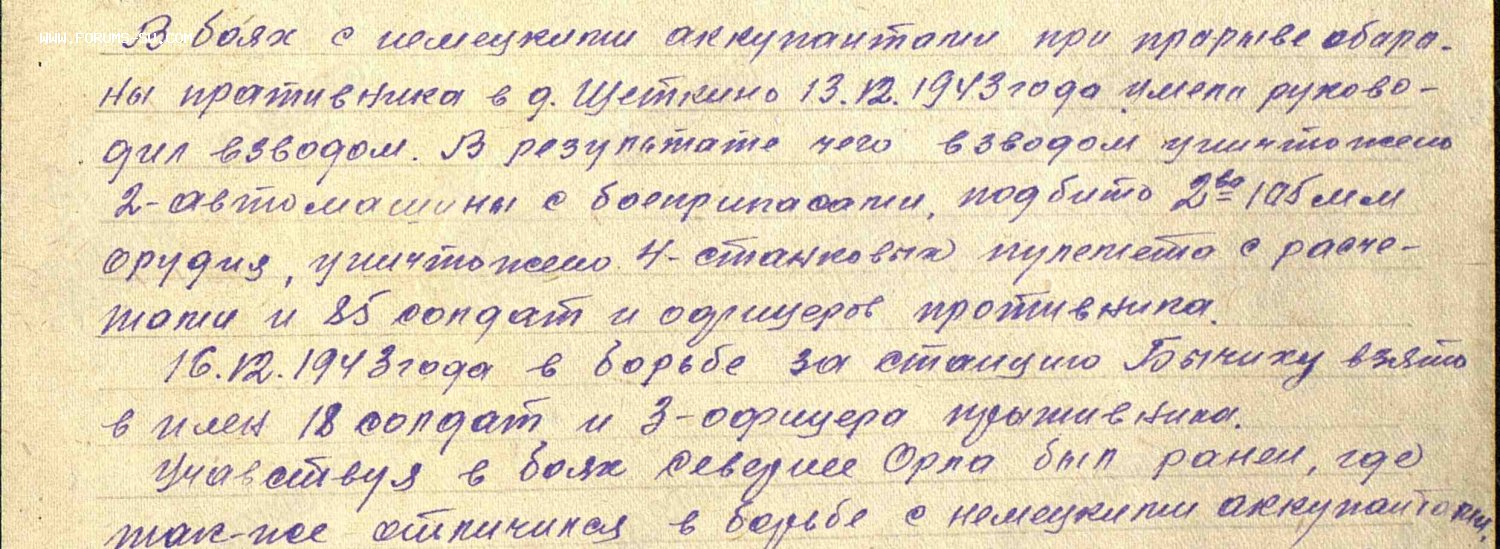 WWW.FORUMS-SU.COM
В боях с немецкими аккупантами при прорыве обаро-
ны пративника в д. Щеткино 13.12.1943 года умело руково-
дил взводом. В результате чего взводом уничтожено
2-автомашины с боеприпасами, подбито 2во 105 мм
орудия, уничтожено 4-станковых пулемета с расче-
тами и 85 солдат и офицеров противника.
16.12.1943 года в борьбе за станцию Бычиху взято
в плен 18 солдат и 3-офицера противника.
Учавствуя в боях севернее Орла был ранен, где
так-же отличился в борьбе с немецкими аккупантами.